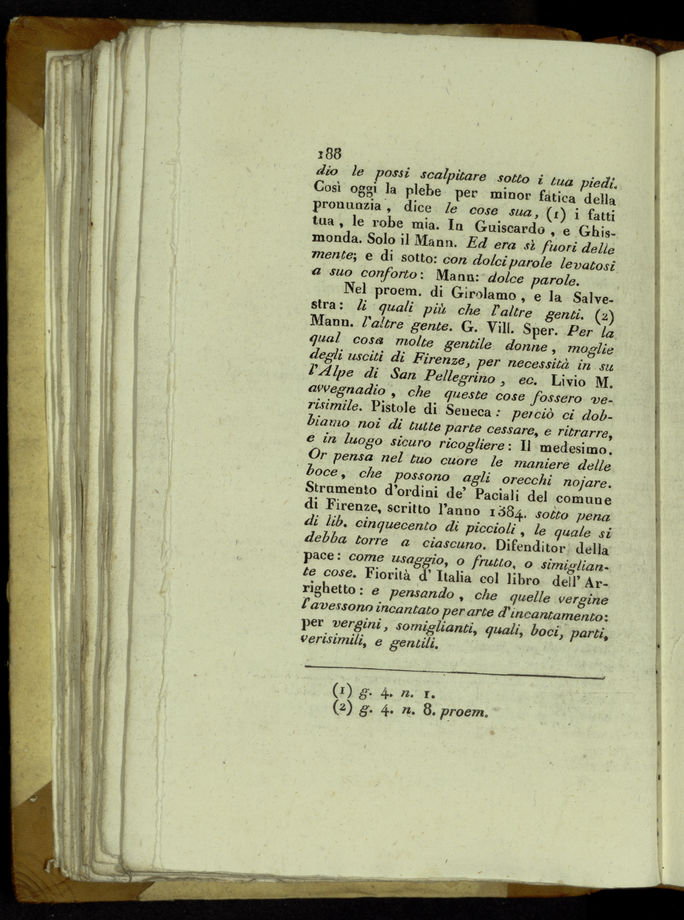 188
dio le possi scalpitare sotto i tua piedi.
Così oggi la plebe per minor fatica della
pronunzia, dice le cose sua, (1) i fatti
tua, le robe mia. In Guiscardo, e Ghis-
monda. Solo il Mann. Ed era sì fuori delle
mente; e di sotto: con dolci parole levatosi
a suo conforto: Mann: dolce parole.
Nel proem. di Girolamo, e la Salve-
stra: li quali più che l'altre genti. (2)
Mann. l'altre gente. G. Vill. Sper. Per la
qual cosa molte gentile donne, moglie
degli usciti di Firenze, per necessità in su
l'Alpe di San Pellegrino, ec. Livio M.
avvegnadio, che queste cose fossero ve-
risimile. Pistole di Seneca: perciò ci dob-
biamo noi di tutte parte cessare, e ritrarre,
e in luogo sicuro ricogliere: Il medesimo.
Or pensa nel tuo cuore le maniere delle
boce, che possono agli orecchi nojare.
Strumento d'ordini de' Paciali del comune
di Firenze, scritto l'anno 1384. sotto pena
di lib. cinquecento di piccioli, le quale si
debba torre a ciascuno. Difenditor della
pace: come usaggio, o frutto, o simiglian-
te cose. Fiorità d' Italia col libro dell' Ar-
righetto: e pensando, che quelle vergine
l'avessono incantato per arte d'incantamento:
per vergini, somiglianti, quali, boci, parti,
verisimili, e gentili.
(1) g. 4. n. 1.
(2) g. 4. n. 8. proem.